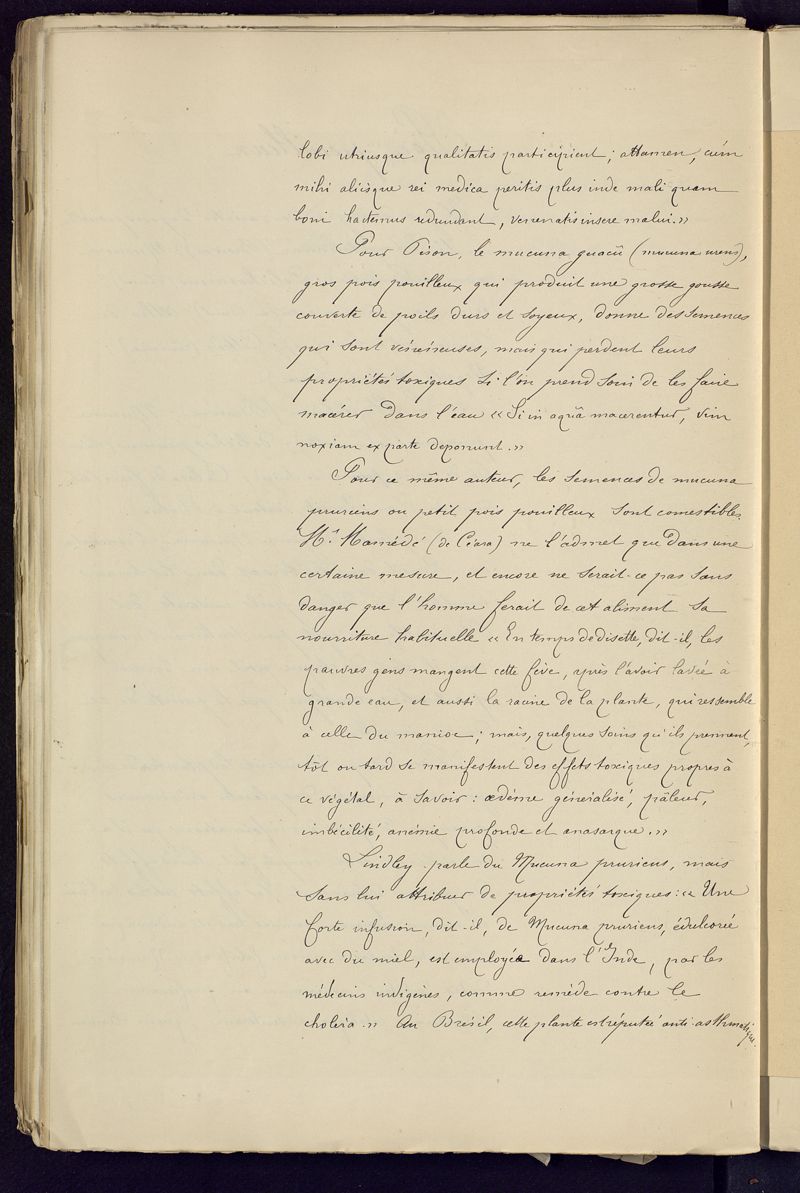 lobi utriusque qualitatis participient; attamen, cùm
mihi aliisque rei medica peritis plus inde mali quam
boni hactenus redundant, venenatis insere malui.»
Pour Pison, le mucuna guacù (mucuna urens),
gros pois pouilleux qui produit une grosse gousse
couverte de poils durs et soyeux, donne des semences
qui sont vénéneuses, mais qui perdent leurs
propriétés toxiques si l'on prend soin de les faire
macérer dans l'eau « Si in aquâ macerentur, vim
noxiam ex parte deponunt.»
Pour ce même auteur, les semences de mucuna
pruriens ou petit pois pouilleux sont comestibles.
Mr. Mamédé (de Céara) ne l'admet que dans une
certaine mesure, et encore ne serait-ce pas sans
danger que l'homme ferait de cet aliment sa
nourriture habituelle « En temps de disette, dit-il, les
pauvres gens mangent cette fève, après l'avoir lavée à
grande eau, et aussi la racine de la plante, qui ressemble
à celle du manioc; mais, quelques soins qu'ils prennent,
tôt ou tard se manifestent des effets toxiques propres à
ce végétal, à savoir: œdème généralisé, pâleur,
imbécilité, anémie profonde et anasarque.»
Lindley parle du Mucuna pruriens, mais
sans lui attribuer de propriétés toxiques: « Une
forte infusion, dit-il, de Mucuna pruriens, édulcorée
avec du miel, est employée dans l'Inde, par les
médecins indigènes, comme remède contre le
choléra.» Au Brésil, cette plante est réputée anti-asthmatique.